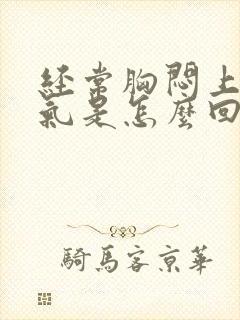 經常胸悶上
氣是怎麼回
騎馬客京華